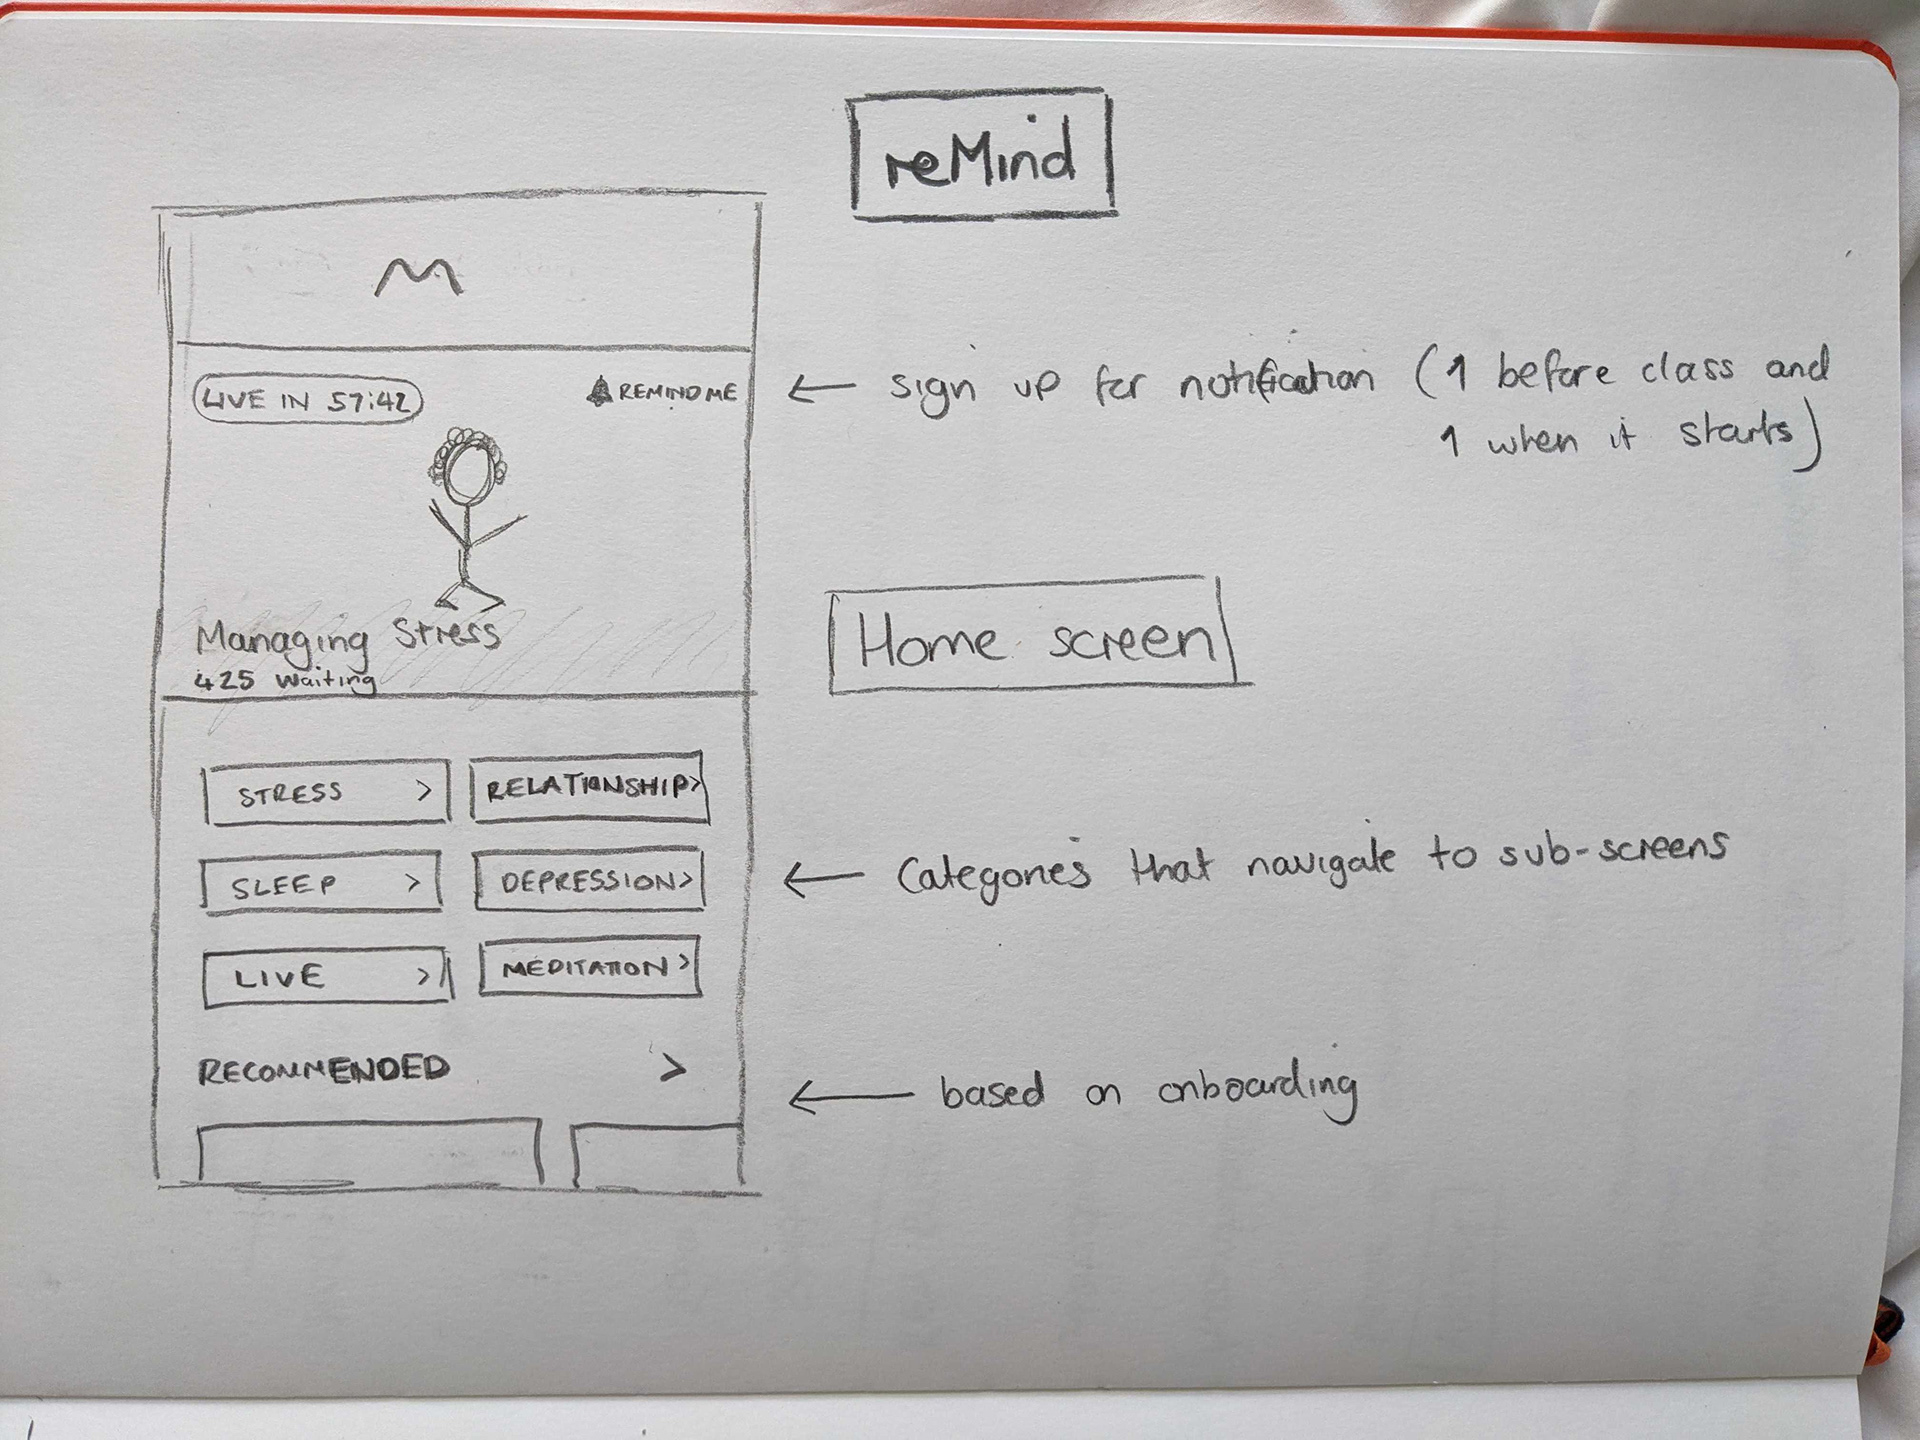 reMind
M
LIVE IN 57:42
REMIND ME
← sign up for notification (1 before class and
1 when it starts)
Managing Stress
425 waiting
Home screen
STRESS >
RELATIONSHIP>
SLEEP >
DEPRESSION>
← Categories that navigate to sub-screens
LIVE >
MEDITATION >
RECOMMENDED >
← based on onboarding